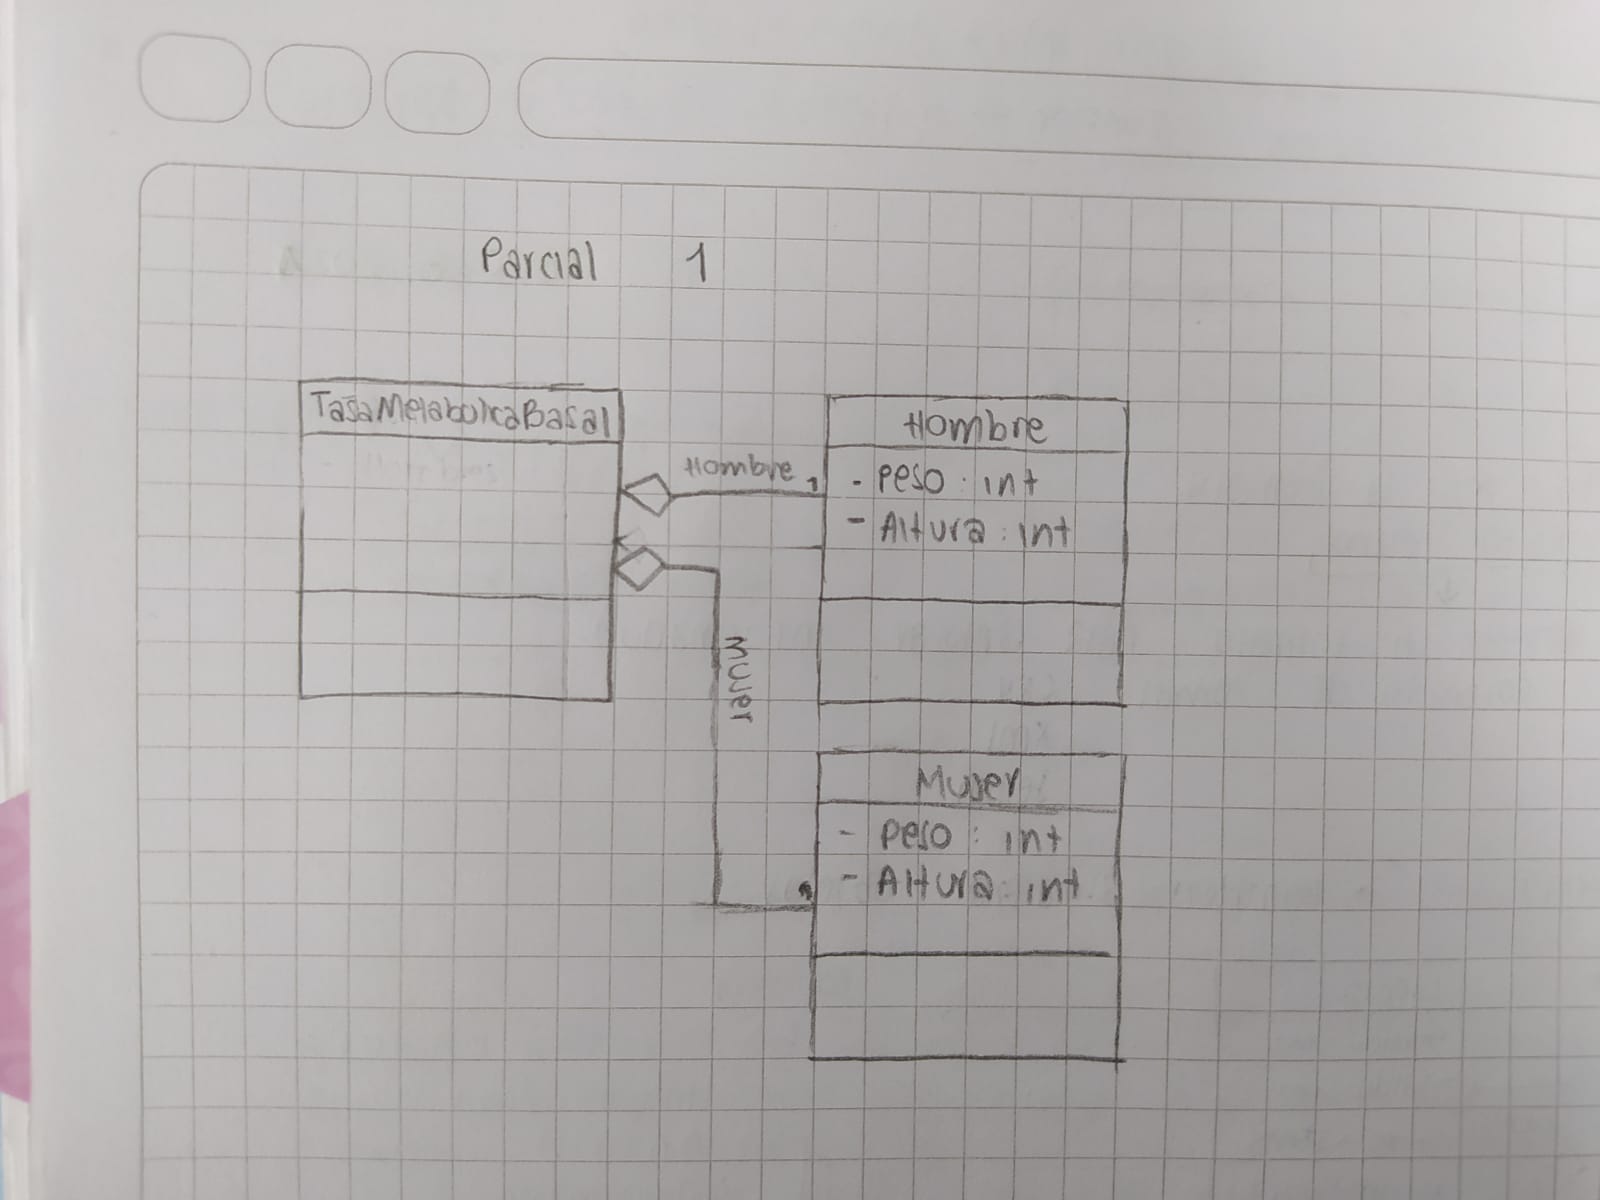 Parcial 1
TasaMetabolicaBasal
Hombre 1
Hombre
- Peso : int
- Altura : int
Mujer
Mujer
- Peso : int
- Altura : int